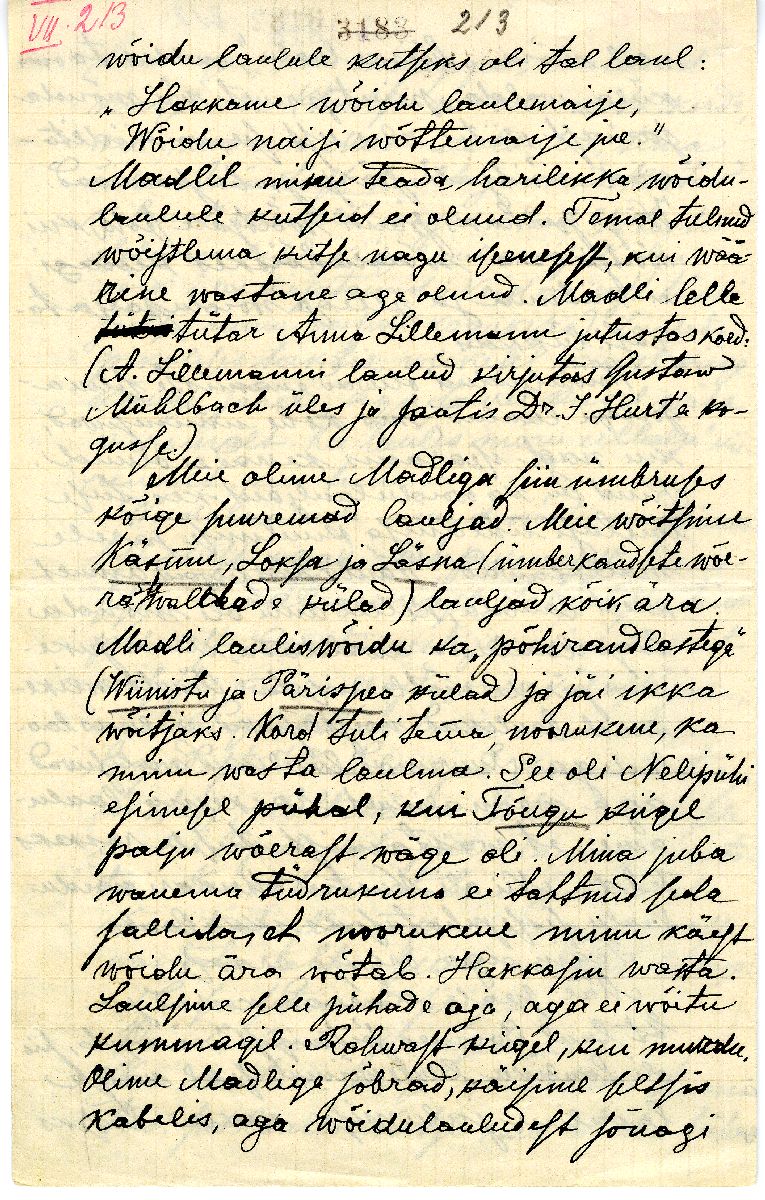 VII. 213
3183 213
wõidu laulule kutseks oli tal laul:
„Hakkame wõidu laulemaije,
Wõidu naisi wõttemaije jne."
Madlil minu teada, harilikka wõidu-
laulule kutseid ei olnud. Temal tulnud
wõistlema kutse nagu iseenesest, kui wää-
riline wastane aga olnud. Madli lelle
tütar Anna Lillemann jutustas kord:
(A. Lillemanni laulud kirjutas Gustaw
Mühlbach üles ja saatis Dr. J. Hurt'a ko-
gusse.)
Meie olime Madliga siin ümbruses
kõige suuremad lauljad. Meie wõitsime
Käsmu, Loksa ja Läsna (ümberkaudsete wõe-
raste waldade külad) lauljad kõik ära.
Madli laulis wõidu ka „põhirandlastega"
(Wiinistu ja Pärispea külad) ja jäi ikka
wõitjaks. Kord tuli tema, noorukene, ka
minu wasta laulma. See oli Nelipühi
esimesel pühal, kui Tõugu kiigel
palju wõerast wäge oli. Mina juba
wanema tüdrukuna ei tahtnud seda
sallida, et noorukene minu käest
wõidu ära wõtab. Hakkasin wasta.
Laulsime selle pühade aja, aga ei wõitu
kummagil. Rahwast kiigel, kui murdu.
Olime Madliga sõbrad, käisime seltsis
Kabelis, aga wõidulauludest sõnagi